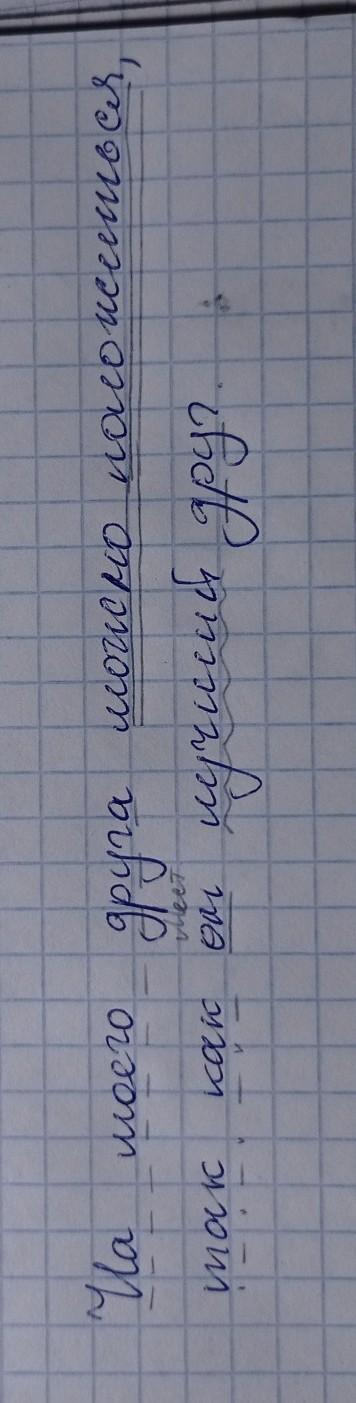 На моего друга можно положиться,
мест
так как он лучший друг.